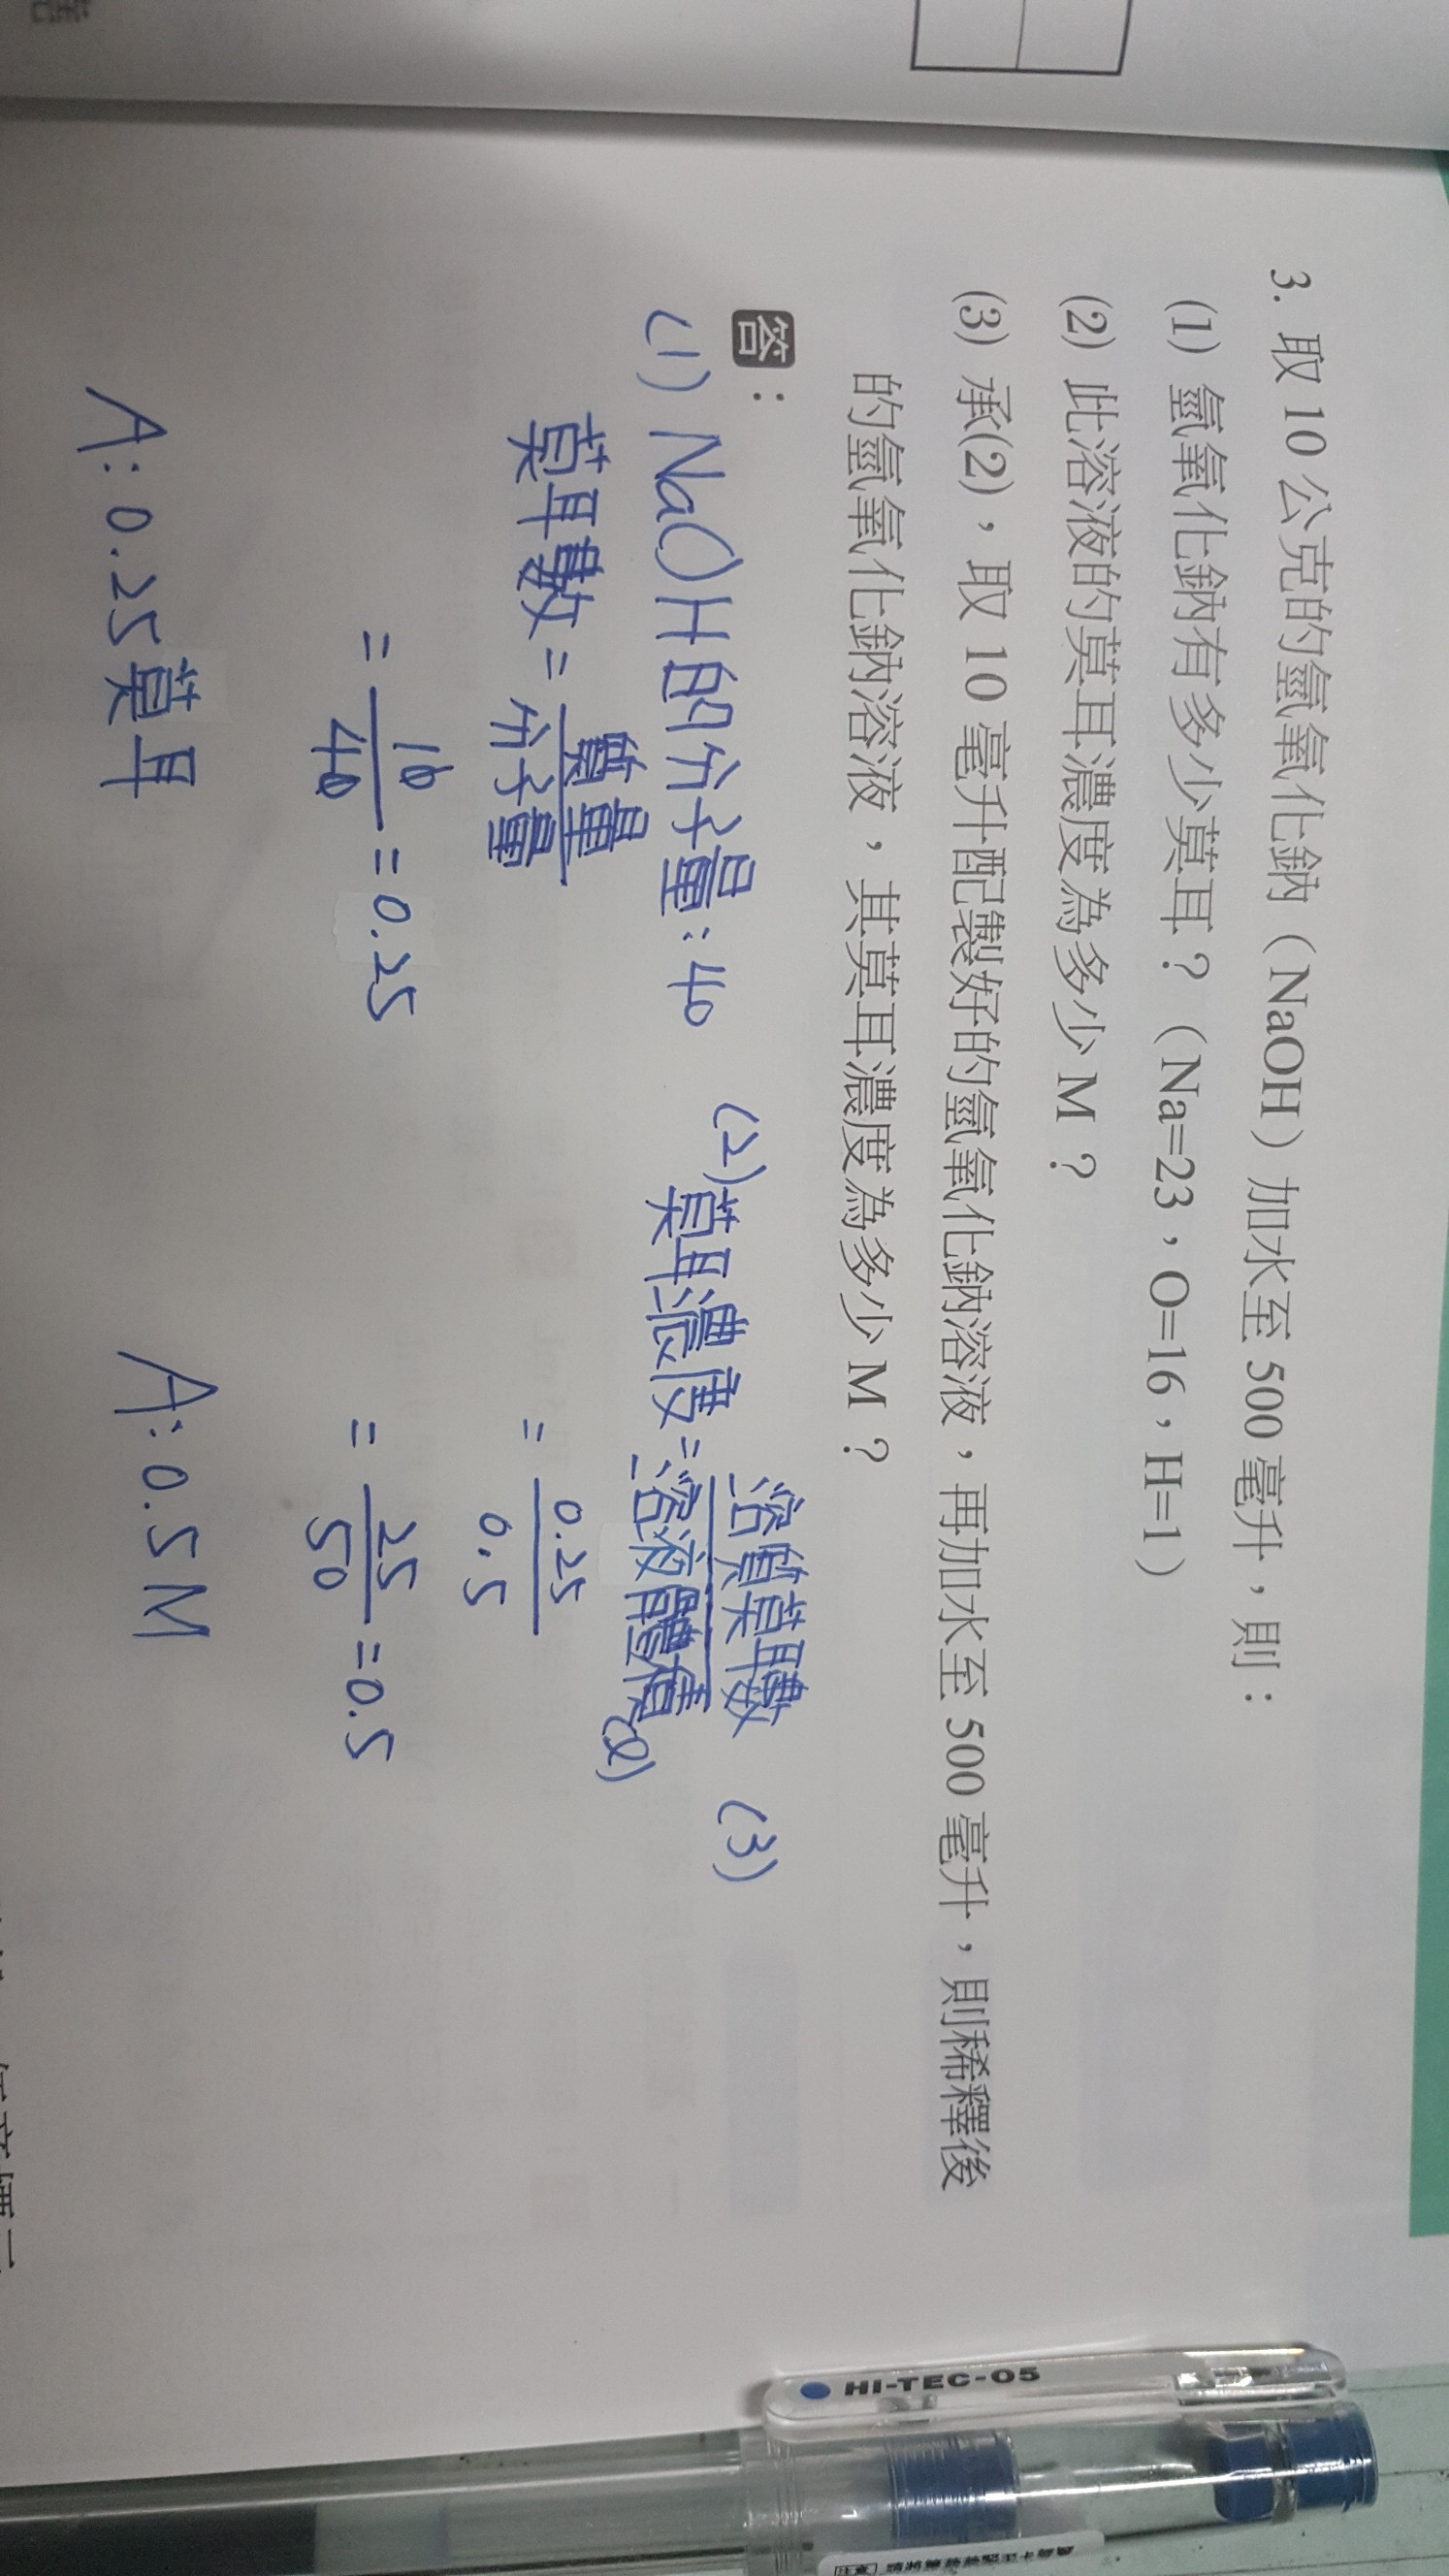 3. 取 10 公克的氫氧化鈉（NaOH）加水至 500 毫升，則：
(1) 氫氧化鈉有多少莫耳？（Na=23，O=16，H=1）
(2) 此溶液的莫耳濃度為多少 M？
(3) 承(2)，取 10 毫升配製好的氫氧化鈉溶液，再加水至 500 毫升，則稀釋後
的氫氧化鈉溶液，其莫耳濃度為多少 M？
答：
(1) NaOH的分子量:40
莫耳數 = 質量
分子量
= 10
40
= 0.25
A: 0.25莫耳
(2)
莫耳濃度 = 溶質莫耳數
溶液體積(ℓ)
= 0.25
0.5
= 25
50
= 0.5
A: 0.5M
(3)
HI-TEC-05